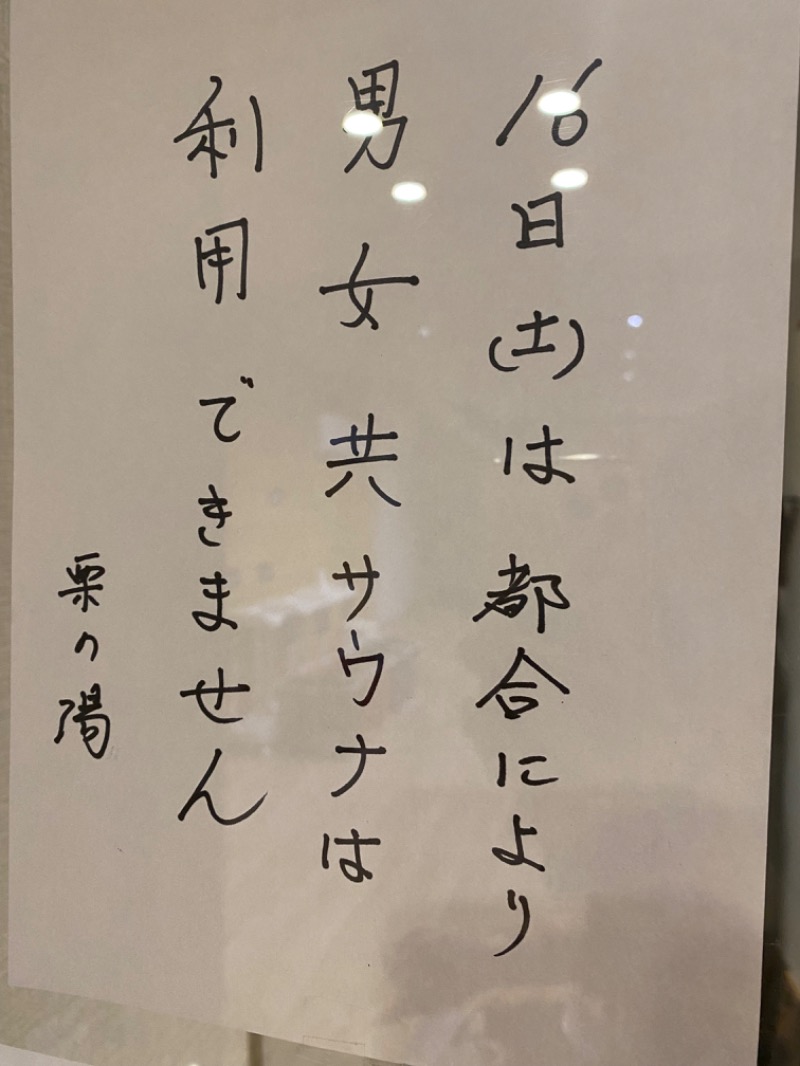 16日(土)は都合により
男女共サウナは
利用できません
栗の湯